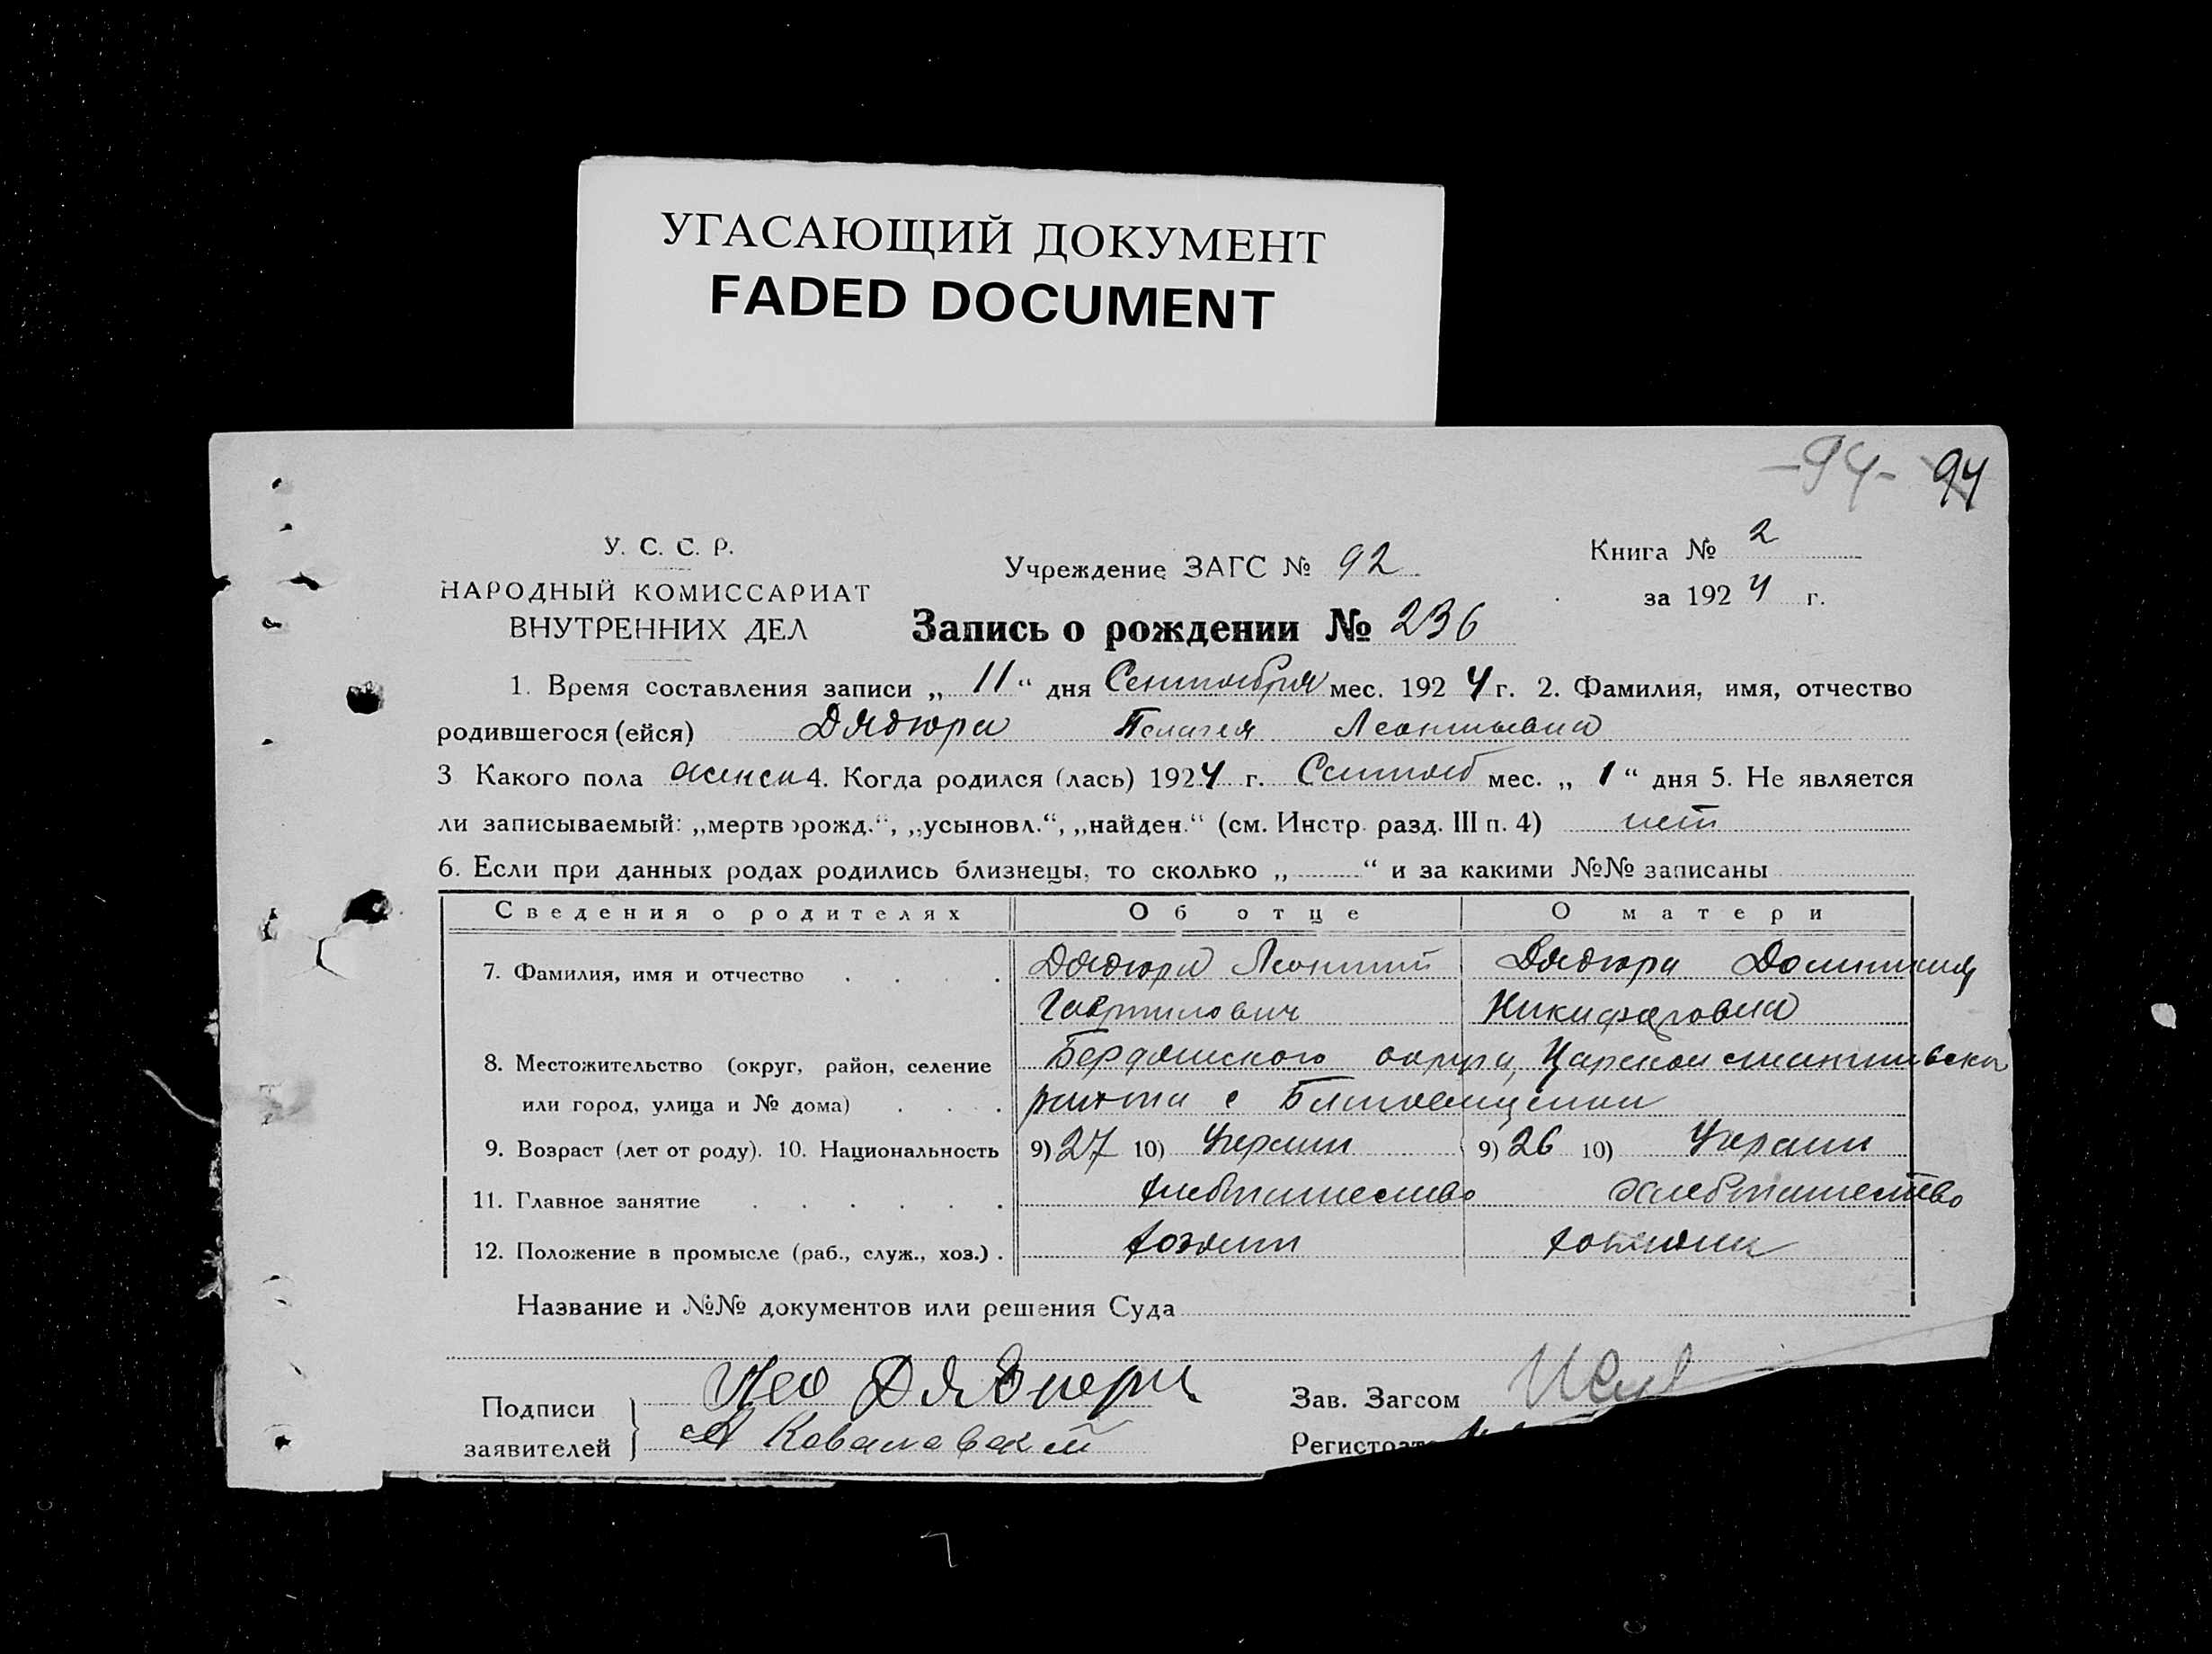 УГАСАЮЩИЙ ДОКУМЕНТ
FADED DOCUMENT
-94- 94
У. С. С. Р.
НАРОДНЫЙ КОМИССАРИАТ
ВНУТРЕННИХ ДЕЛ
Учреждение ЗАГС № 92
Книга № 2
за 1924 г.
Запись о рождении № 236
1. Время составления записи „ 11 “ дня Сентября мес. 1924 г. 2. Фамилия, имя, отчество
родившегося (ейся) Дядюра Пелагея Леонтьевна
3 Какого пола женск 4. Когда родился (лась) 1924 г. Сентяб мес. „ 1 “ дня 5. Не является
ли записываемый: „мертворожд.“, „усыновл.“, „найден.“ (см. Инстр. разд. III п. 4) нет
6. Если при данных родах родились близнецы, то сколько „ “ и за какими №№ записаны
Сведения о родителях Об отце О матери
7. Фамилия, имя и отчество Дядюра Леонтий Дядюра Доминикия
Гаврилович Никифоровна
8. Местожительство (округ, район, селение Бердянского округа, Царевоконстантиновск
или город, улица и № дома) района с
9. Возраст (лет от роду). 10. Национальность 9) 27 10) Украин 9) 26 10) Украин
11. Главное занятие хлебопашество хлебопашество
12. Положение в промысле (раб., служ., хоз.) хозяин хозяин
Название и №№ документов или решения Суда
Подписи Лео Дядюра
заявителей А Ковалевский
Зав. Загсом
Регистрат